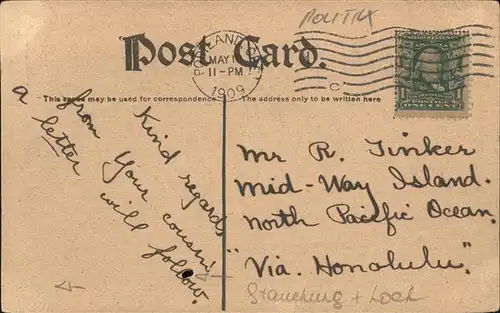 POLITIX
Post Card.
PORTLAND
MAY 1
11-PM
1909
C
This space may be used for correspondence
The address only to be written here
1
Kind regards
from Your cousin,
a letter will follow.
Mr R. Tinker
Mid-Way Island.
North Pacific Ocean.
"Via. Honolulu."